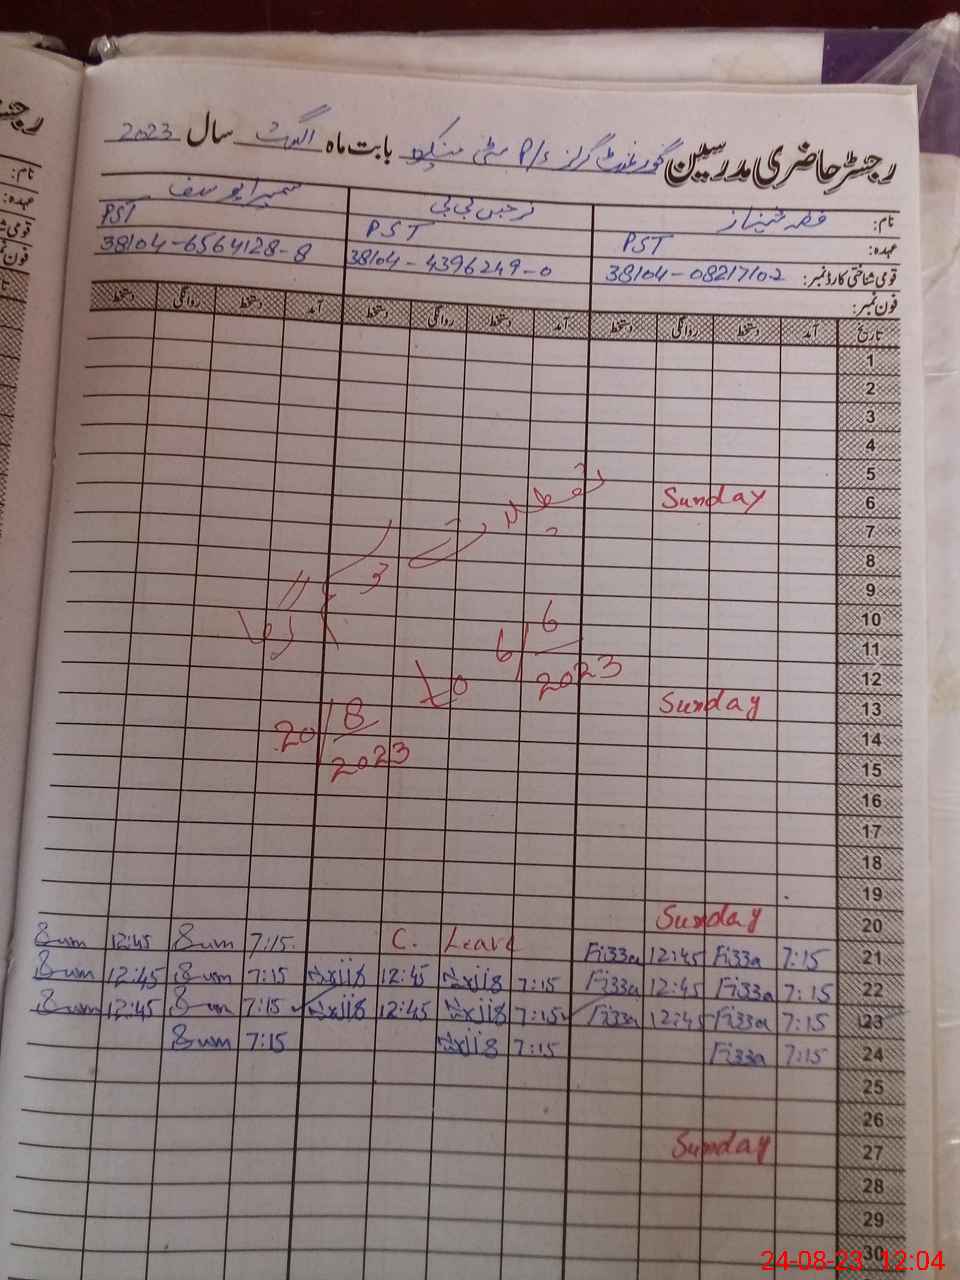 رجسٹر حاضری مدرسین گورنمنٹ گرلز P/S سٹی بابت ماہ اگست سال 2023
نام: فضہ شہناز نرجس بی بی سمیرا یوسف
عہدہ: PST PST PST
قومی شناختی کارڈ نمبر: 38104-0821710-2 38104-4396249-0 38104-6564128-8
فون نمبر:
تاریخ آمد دستخط روانگی دستخط آمد دستخط روانگی دستخط آمد دستخط روانگی دستخط
1
2
3
4
5
6 Sunday
7
8
9
10
11
12
13 Sunday
14
15
16
17
18
19
20 Sunday
تعطیلات
6/6/2023
to
20/8/2023
21 7:15 Fi33a 12:45 Fi33a C. Leave 7:15 Sum 12:45 Sum
22 7:15 Fi33a 12:45 Fi33a 7:15 12:45 7:15 Sum 12:45 Sum
23 7:15 Fi33a 12:45 Fi33a 7:15 12:45 7:15 Sum 12:45 Sum
24 7:15 Fi33a 7:15 7:15 Sum
25
26
27 Sunday
28
29
30
نام:
عہدہ:
24-08-23 12:04